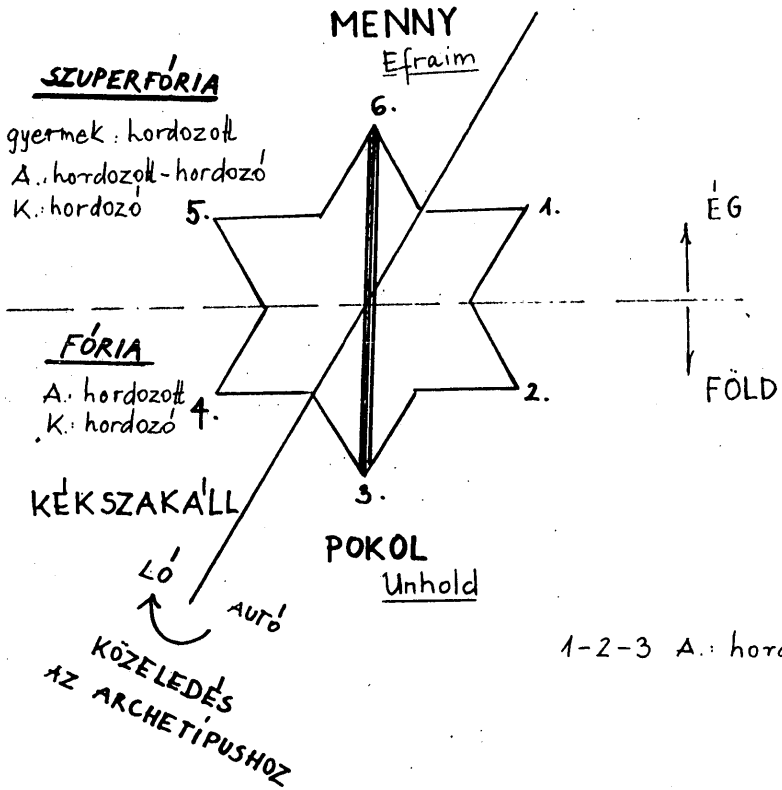 MENNY
Efraim
SZUPERFÓRIA
gyermek: hordozott
A.: hordozott-hordozó
K.: hordozó
6.
5.
1.
ÉG
FÓRIA
A.: hordozott
K.: hordozó
4.
2.
FÖLD
3.
KÉKSZAKÁLL
POKOL
Unhold
LÓ
AUTÓ
KÖZELEDÉS
AZ ARCHETÍPUSHOZ
1-2-3 A.: